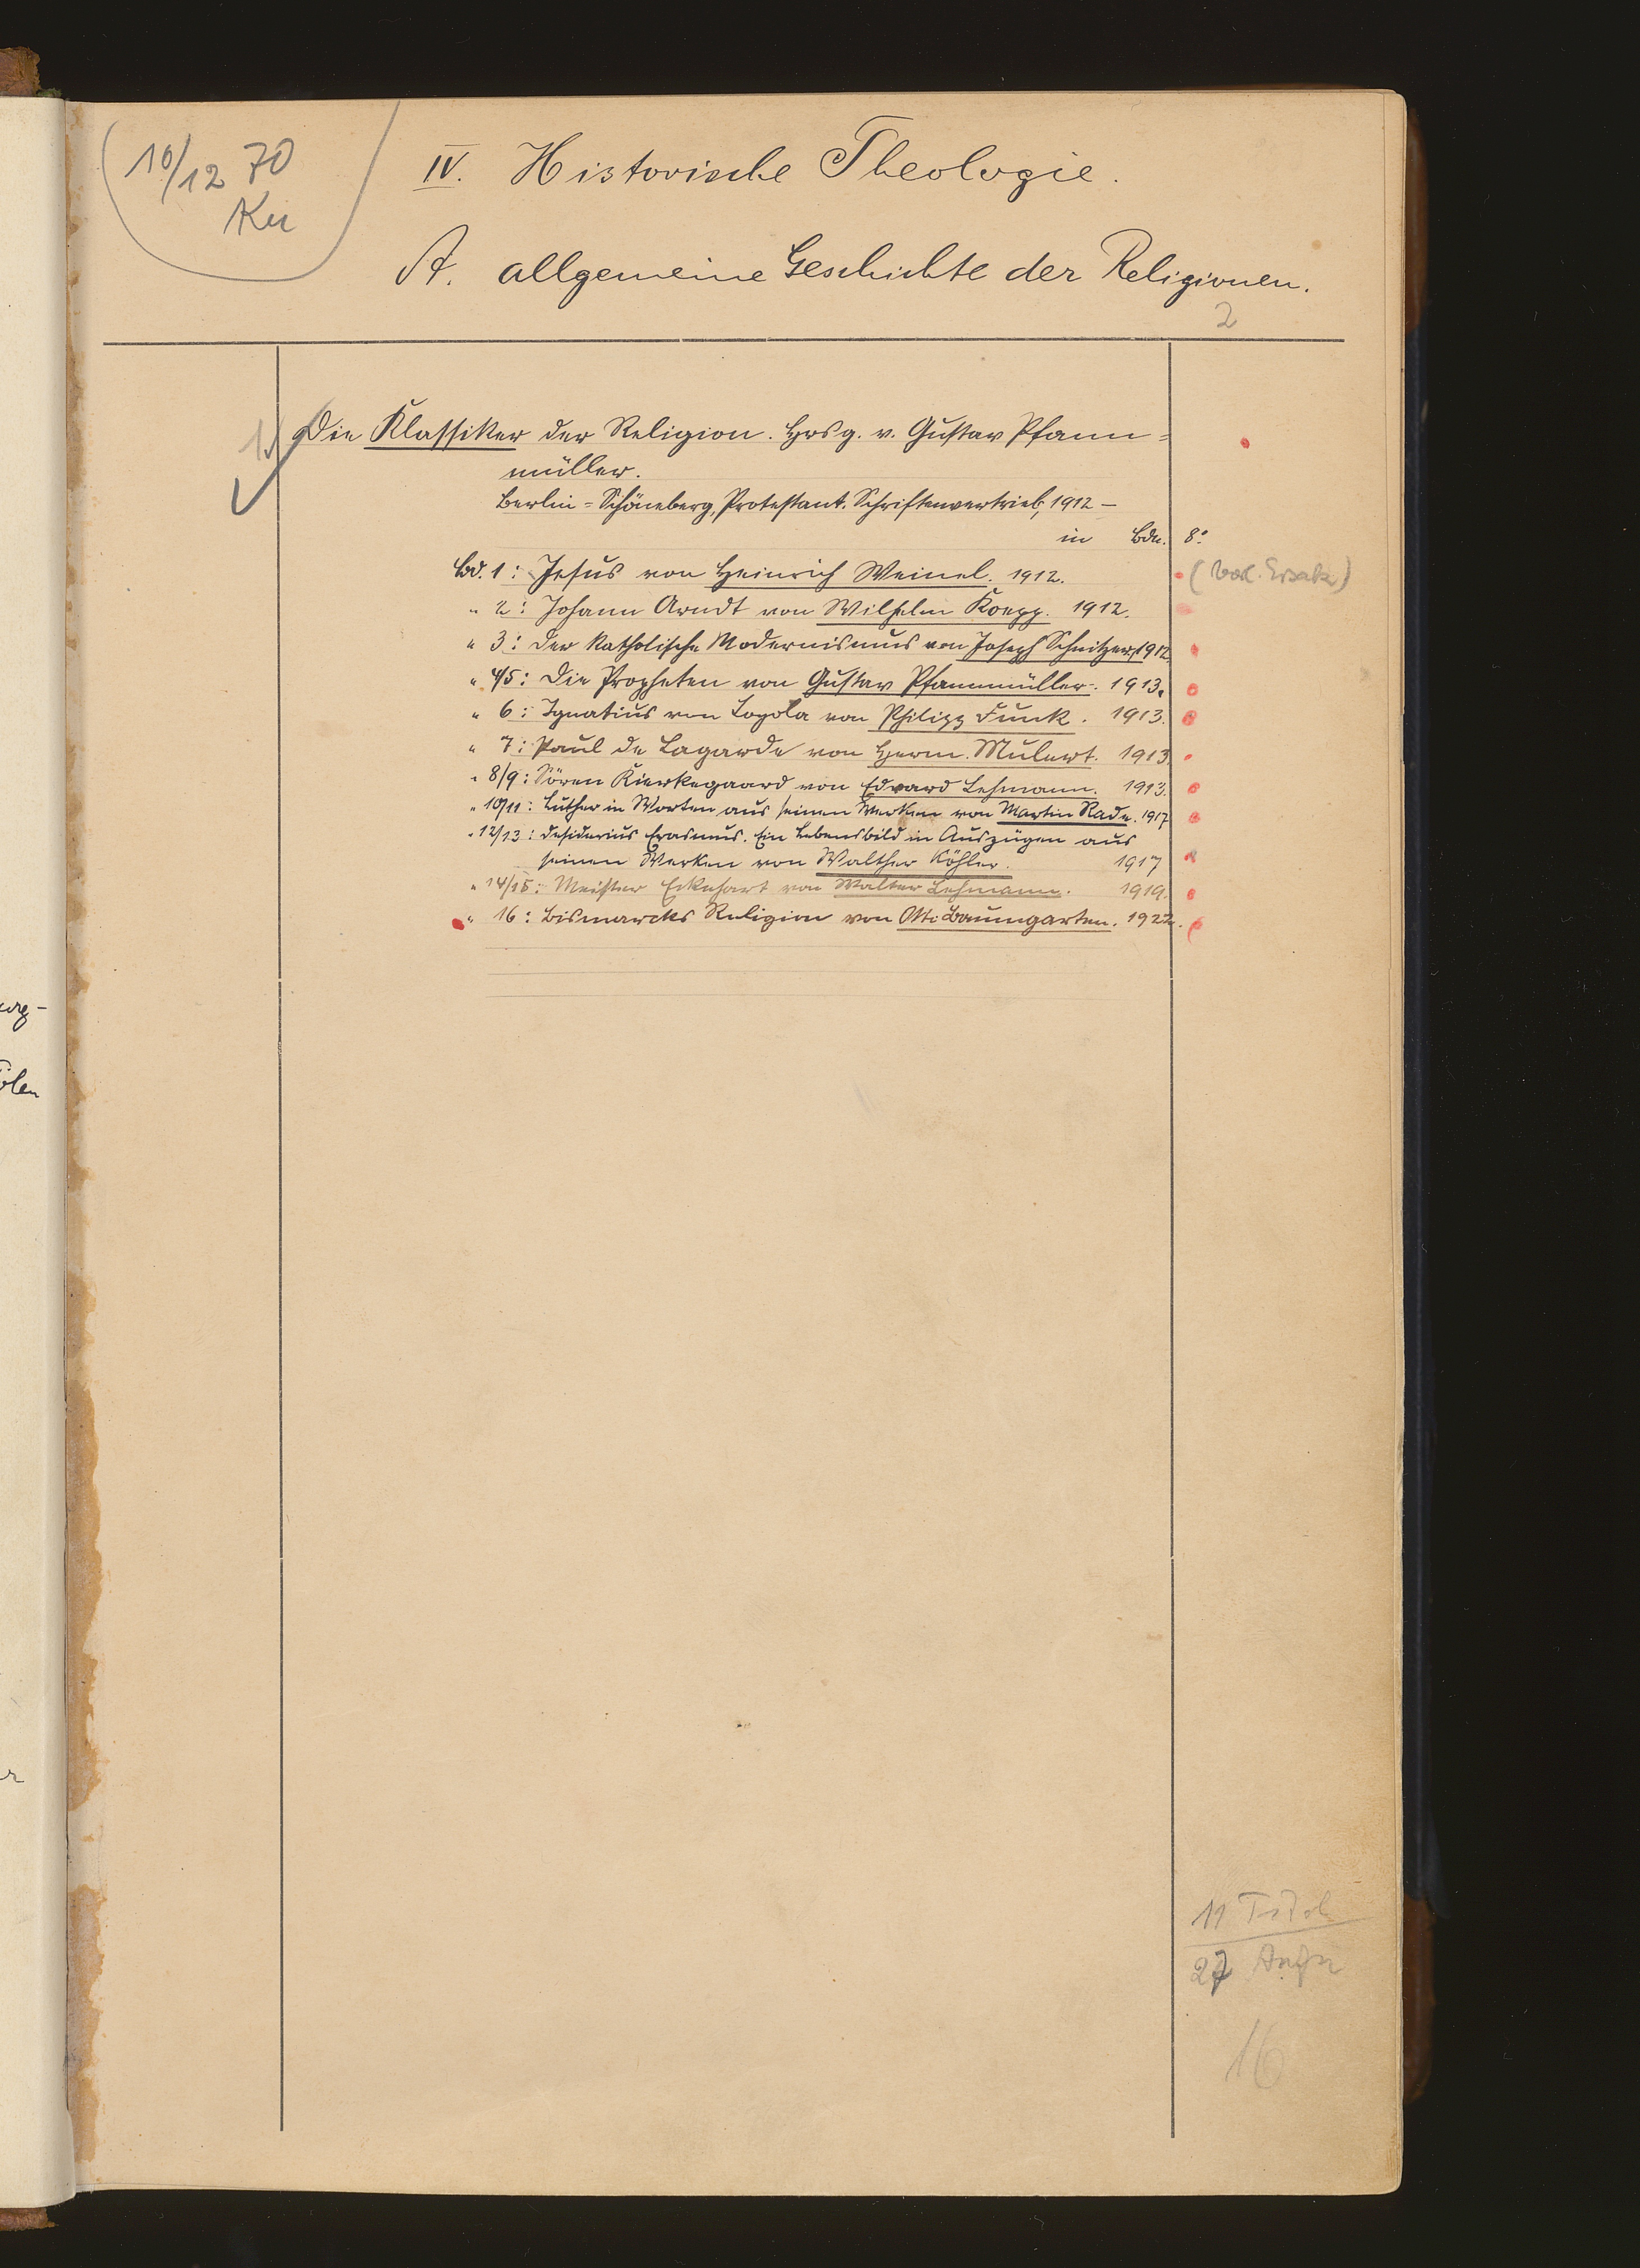 10/12 70
Ku
IV. Historische Theologie.
A. allgemeine Geschichte der Religionen.
2
1.) Die Klassiker der Religion. Hrsg. v. Gustav Pfann=
müller.
Berlin=Schöneberg, Protestant. Schriftenvertrieb, 1912 –
in Bdn. 8°.
Bd. 1: Jesus von Heinrich Weinel. 1912. (vol. Ersatz)
" 2: Johann Arndt von Wilhelm Koepp. 1912.
" 3: Der katholische Modernismus von Joseph Schnitzer. 1912.
" 4/5: Die Propheten von Gustav Pfannmüller. 1913.
" 6: Ignatius von Loyola von Philipp Funk. 1913.
" 7: Paul de Lagarde von Herm. Mulert. 1913.
" 8/9: Sören Kierkegaard von Edvard Lehmann. 1913.
" 10/11: Luther in Worten aus seinen Werken von Martin Rade. 1917
" 12/13: Desiderius Erasmus. Ein Lebensbild in Auszügen aus
seinen Werken von Walther Köhler. 1917
" 14/15: Meister Eckehart von Walter Lehmann. 1919.
" 16: Bismarcks Religion von Otto Baumgarten. 1922.
11 Titel
27
16